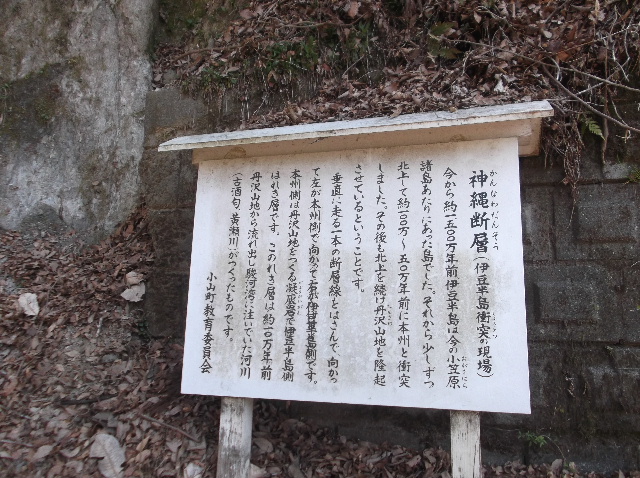 神縄断層(伊豆半島衝突の現場)
かんなわだんそう
今から約一五〇万年前伊豆半島は今の小笠原
諸島あたりにあった島でした。それから少しずつ
北上して約一〇〇万〜五〇万年前に本州と衝突
しました。その後も北上を続け丹沢山地を隆起
させているということです。
垂直に走る一本の断層線をはさんで、向かっ
て左が本州側で向かって右が伊豆半島側です。
本州側は丹沢山地をつくる凝灰岩層で伊豆半島側
はれき層です。このれき層は約一〇万年前
丹沢山地から流れ出し駿河湾に注いでいた河川
(古酒匂、黄瀬川)がつくったものです。
小山町教育委員会